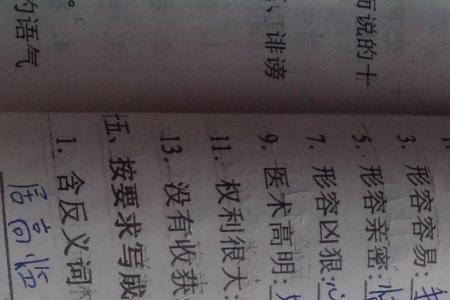 而说的十
、诽谤
的语气
3. 形容容易:
5. 形容亲密:
7. 形容凶狠:
9. 医术高明:
11. 权利很大:
13. 没有收获
伍、按要求写成
1. 含反义词
居高临